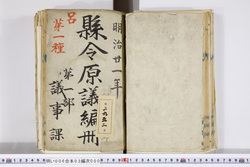 明治廿一年
縣令原議編冊
呂
第一種
第一部
議事課